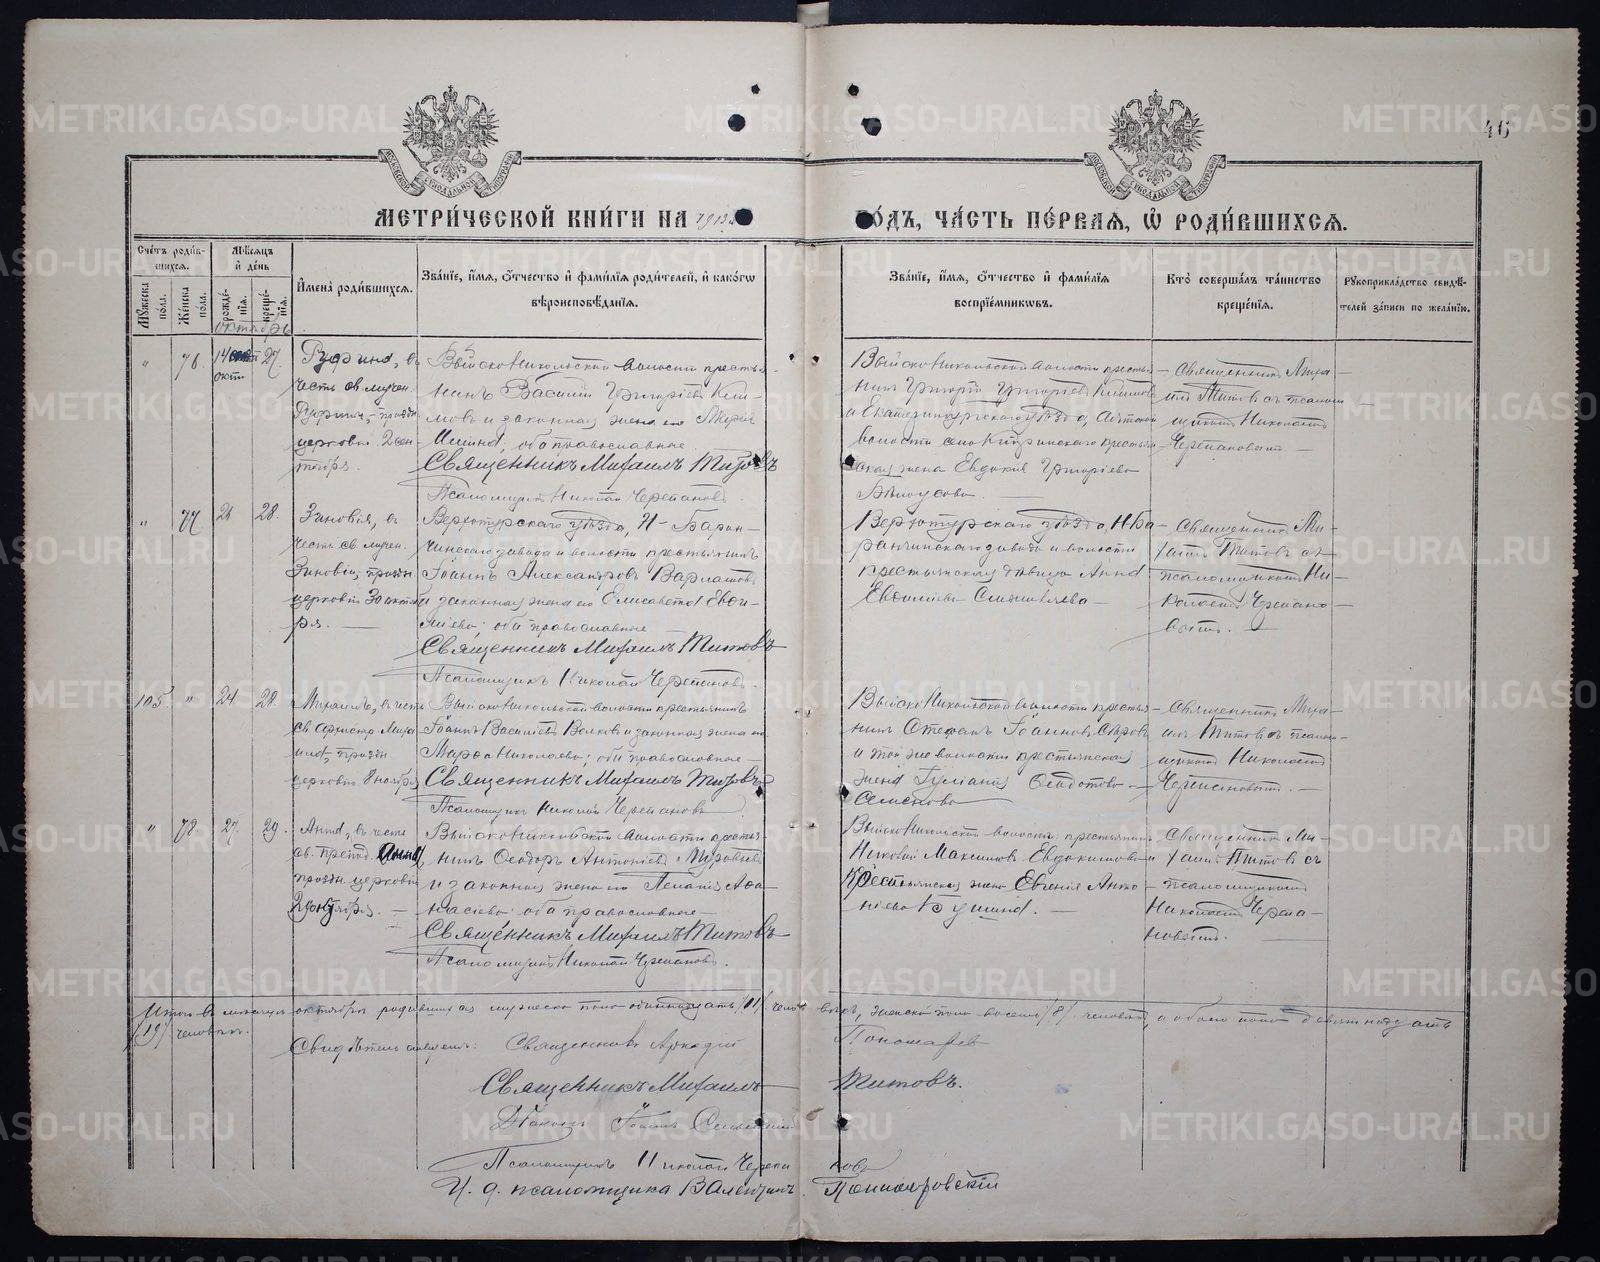 46
МОСКОВСКОЙ СѴНОДАЛЬНОЙ ТИПОГРАФІИ
МОСКОВСКОЙ СѴНОДАЛЬНОЙ ТИПОГРАФІИ
МЕТРИ́ЧЕСКОЙ КНИ́ГИ НА 1913
ГО́ДЪ, ЧА́СТЬ ПЕ́РВАЯ, Ѡ РОДИ́ВШИХСЯ.
Сче́тъ роди́в-
шихся.
Мужеска по́ла.
Же́нска по́ла.
Мѣ́сяцъ
и҆ де́нь
рожде́-
нїя.
креще́-
нїя.
октябрь
И҆мена̀ роди́вшихся.
Зва́нїе, и҆́мя, ѻ҆́тчество и҆ фами́лїя роди́телей, и҆ како́гѡ
вѣроисповѣ́данїя.
Зва́нїе, и҆́мя, ѻ҆́тчество и҆ фами́лїя
воспрїе́мниковъ.
Кто̀ соверша́лъ та́инство
креще́нїя.
Рукоприкла́дство свидѣ́-
телей за́писи по жела́нїю.
„ 76 14 окт 27.
Руфина, въ
честь св. мучен.
Руфины, праздн.
церковію 2 сен-
тября.
Выйско Никольской волости кресть-
янинъ Василій Григоріевъ Кли-
мовъ и законная жена его Марія
оба православные
Священникъ Михаилъ Титовъ
Псаломщикъ Николай Черепановъ.
Выйско Никольской волости кресть-
янинъ Григорій Григоріевъ Климовъ
и Екатеринбургскаго уѣзда, Аятской
волости села крестьян-
ская жена Евдокія Григоріева
Бѣлоусова.
Священникъ Миха-
илъ Титовъ съ псалом-
щикомъ Николаемъ
Черепановымъ.
„ 77 21 28.
Зиновія, въ
честь св. мучен.
Зиновіи, праздн.
церковію 30 октяб-
ря.
Верхотурскаго уѣзда, Н-Баран-
чинскаго завода и волости крестьянинъ
Іоаннъ Александровъ Варлаковъ
и законная жена его Елисавета Евѳи-
міева; оба православные
Священникъ Михаилъ Титовъ
Псаломщикъ Николай Черепановъ.
Верхотурскаго уѣзда, Н Ба-
ранчинскаго завода и волости
крестьянская дѣвица Анна
Священникъ Ми-
хаилъ Титовъ съ
псаломщикомъ Ни-
колаемъ Черепано-
вымъ.
105 „ 24 28.
Михаилъ, въ честь
св. архистр. Миха-
ила, праздн.
церковію 8 ноября
Выйско Никольской волости крестьянинъ
Іоаннъ Васильевъ Волковъ и законная жена его
Марѳа Николаева; оба православные
Священникъ Михаилъ Титовъ
Псаломщикъ Николай Черепановъ
Выйско Никольской волости кресть-
янинъ Стефанъ Іоанновъ
и той же волости крестьянская
жена Іуліанія Ѳеодотова
Семенова
Священникъ Миха-
илъ Титовъ съ псалом-
щикомъ Николаемъ
Черепановымъ.
„ 78 27. 29.
Анна, въ честь
св. препод. Анны,
праздн. церковію
29 октября.
Выйско Никольской волости кресть-
янинъ Ѳеодоръ Антоніевъ
и законная жена его Пелагія Аѳа-
насіева; оба православные
Священникъ Михаилъ Титовъ
Псаломщикъ Николай Черепановъ.
Выйско Никольской волости крестьянинъ
Николай Максимовъ Евдокимовъ и
Крестьянская жена Евгенія Анто-
ніева
Священникъ Ми-
хаилъ Титовъ съ
псаломщикомъ
Николаемъ Черепа-
новымъ.
Итого въ месяцѣ октябрѣ родившихся мужеска пола одиннадцать /11/ человѣкъ, женска пола восемь /8/ человѣкъ, а обоего пола девятнадцать
/19/ человѣкъ.
Свидѣтельствуютъ: Священникъ Аркадій Пономаревъ
Священникъ Михаилъ Титовъ.
Діаконъ Іоаннъ
Псаломщикъ Николай Черепановъ
И. д. псаломщика Валентинъ
METRIKI.GASO-URAL.RU